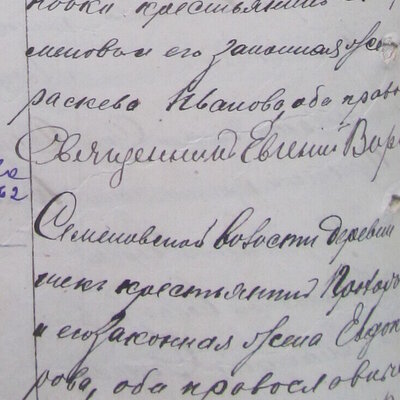 крестьянинъ
меновъ и его законная же
раскева Иванова, оба право
Священникъ Евгений Вар
62
Семеновской волости деревни
крестьянинъ Прокоп
и его законная жена Евдок
рова, оба православные